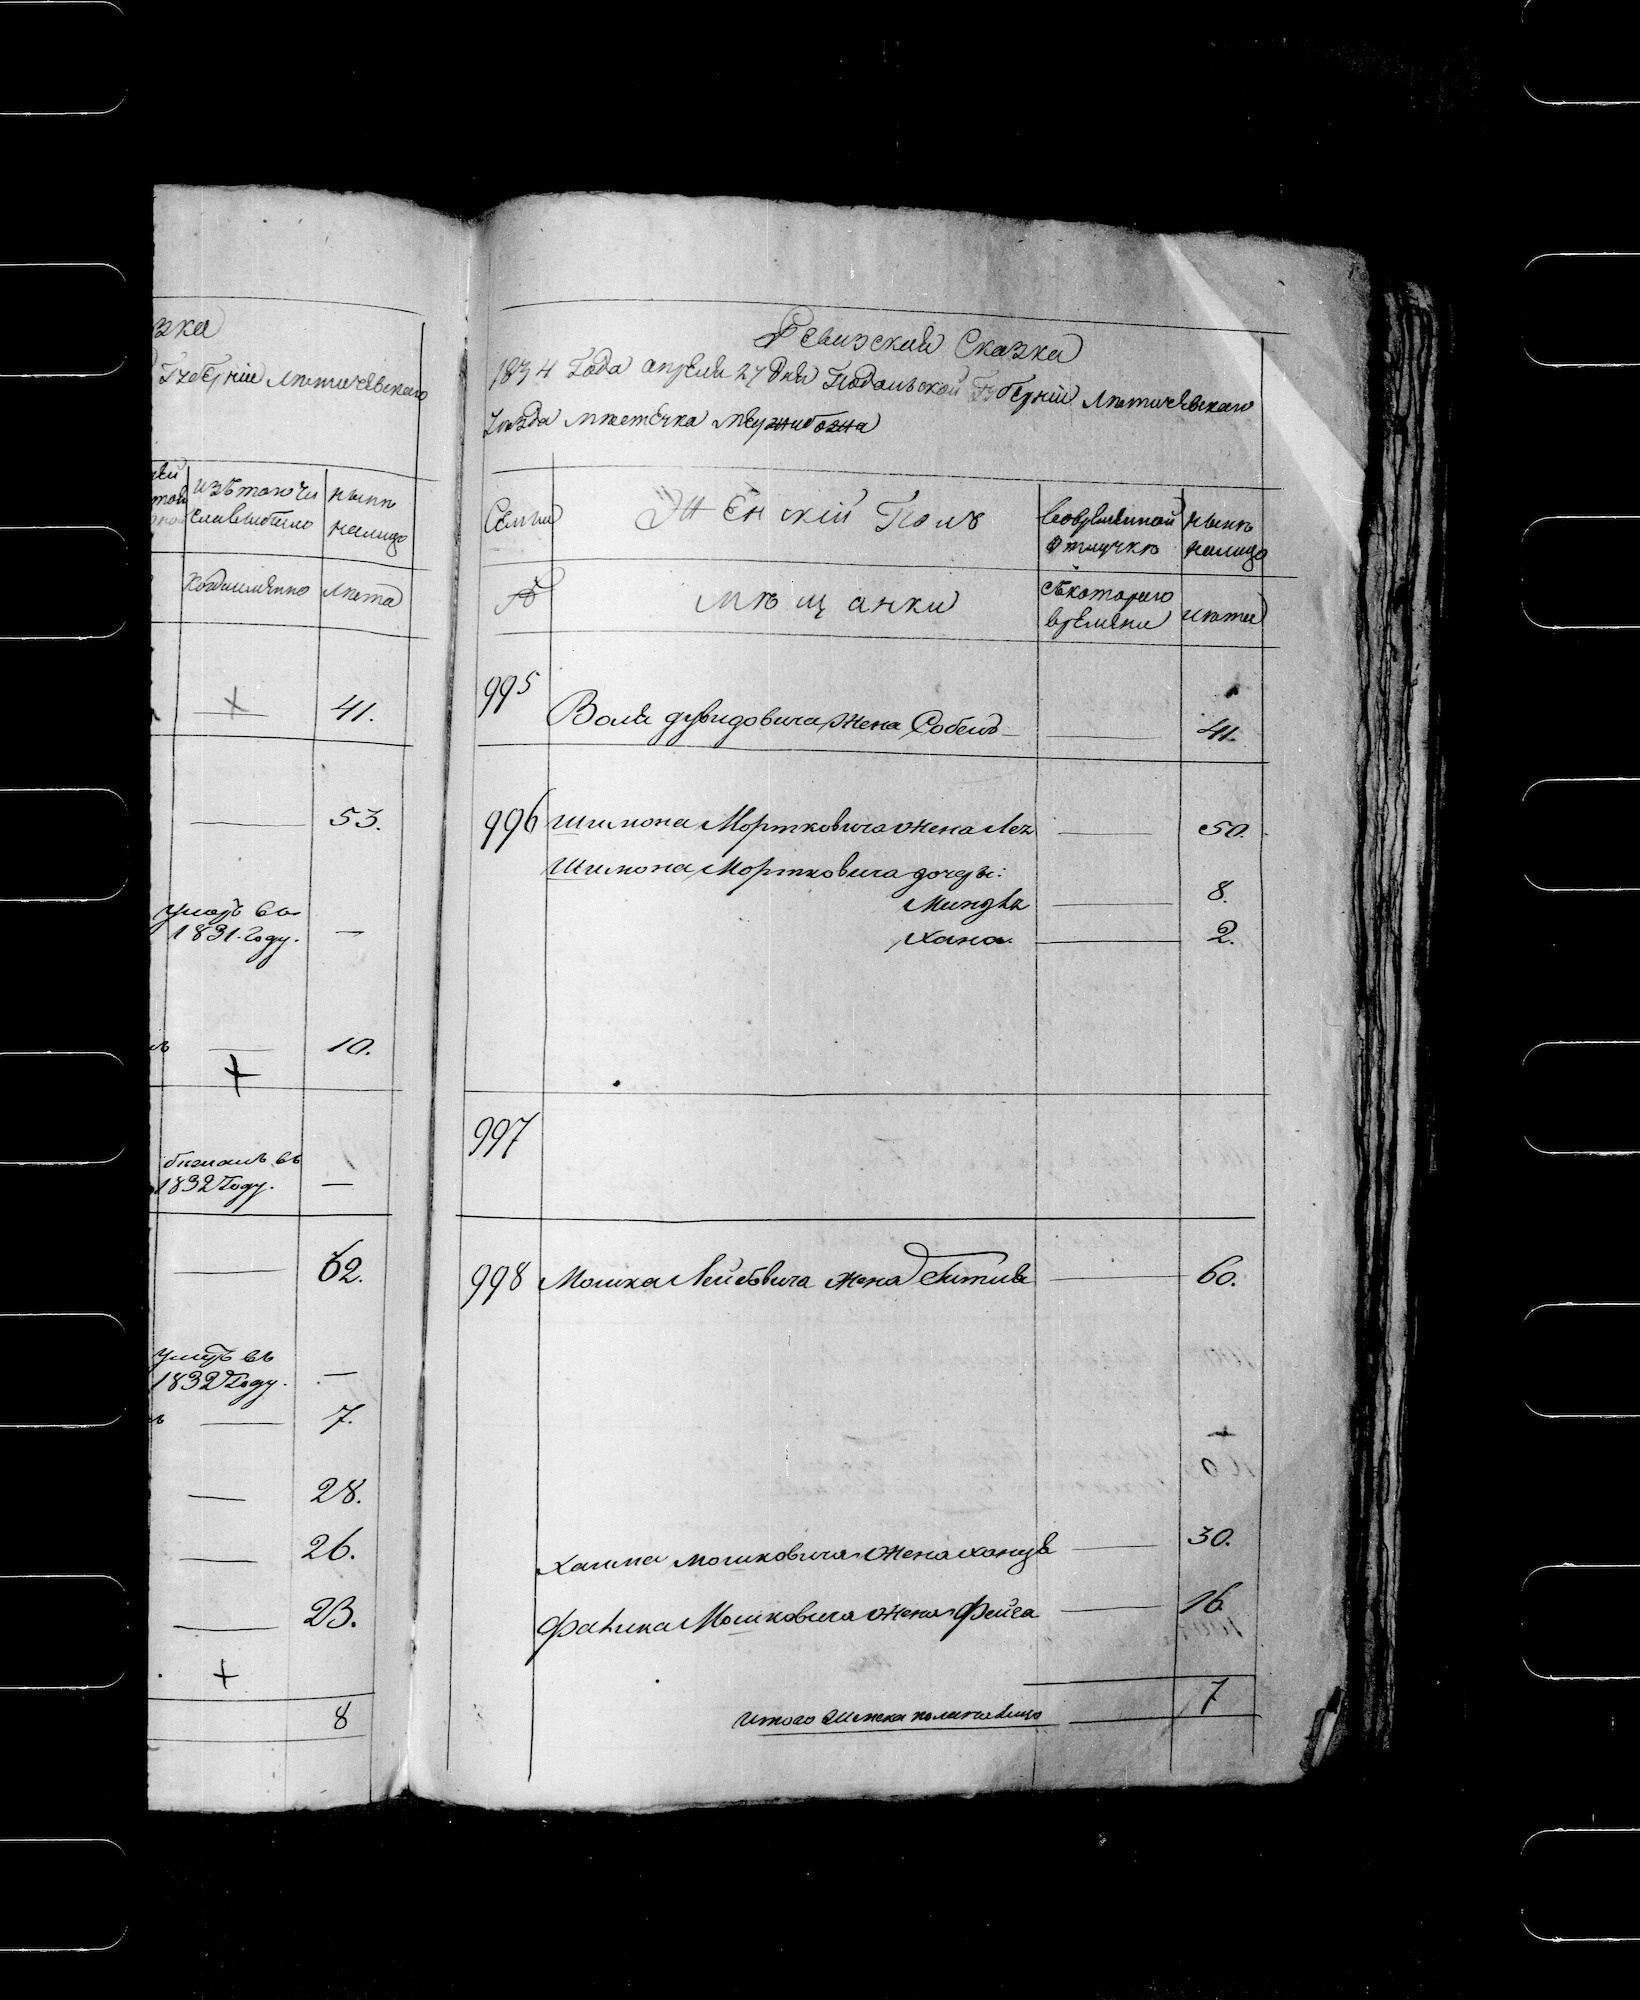 зка
Губерніи Летичевскаго
изъ того числа выбыло
нынѣ налицо
Когда имянно
Лѣта
41.
53.
умеръ въ
1831. Году. —
10.
бѣжалъ въ
1832 Году. —
62.
умеръ въ
1832 Году. —
7.
28.
26.
23.
8
Ревизская Сказка
1834 Года апреля 27 дня Подольской Губерніи Летичевскаго
уѣзда мѣстечка Меджибожа
Семьи
Женскій Полъ
во временной отлучкѣ
нынѣ налицо
№
мѣщанки
съ котораго времени
лѣта
995
Воля дувидовича жена Собель 41.
996 Шимона Мортковича жена Лея 50.
Шимона Мортковича дочери:
Миндля 8.
Хана. 2.
997
998 Мошка Лейбовича жена Гитля 60.
Хаима мошковича жена ханця 30.
Мошковича жена Фейга 16.
итого женска пола налицо 7